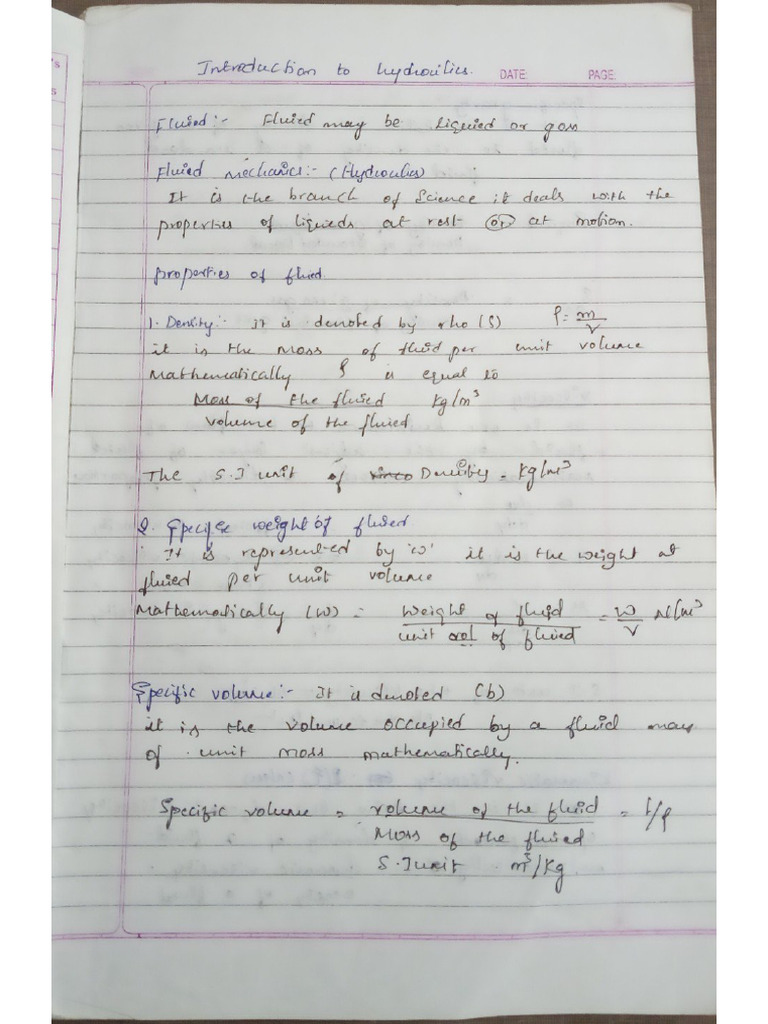 's
s
Introduction to hydroulics. DATE: PAGE:
Fluid:- Fluid may be liquid or gas
Fluid mechanics:- (Hydroulics)
It is the branch of Science it deals with the
properties of liquids at rest or at motion.
properties of fluid.
1. Density:- It is denoted by rho (ρ) ρ = m/V
it is the Mass of fluid per unit volume
Mathematically ρ is equal to
Mass of the fluid kg/m³
volume of the fluid
The S.I unit of Density = kg/m³
2. Specific weight of fluid
It is represented by 'w' it is the weight of
fluid per unit volume
Mathematically (w) = weight of fluid = w/V N/m³
unit vol of fluid
Specific volume:- It is denoted (b)
it is the volume occupied by a fluid may
of unit mass mathematically.
Specific volume = volume of the fluid = 1/ρ
Mass of the fluid
S.I unit m³/kg